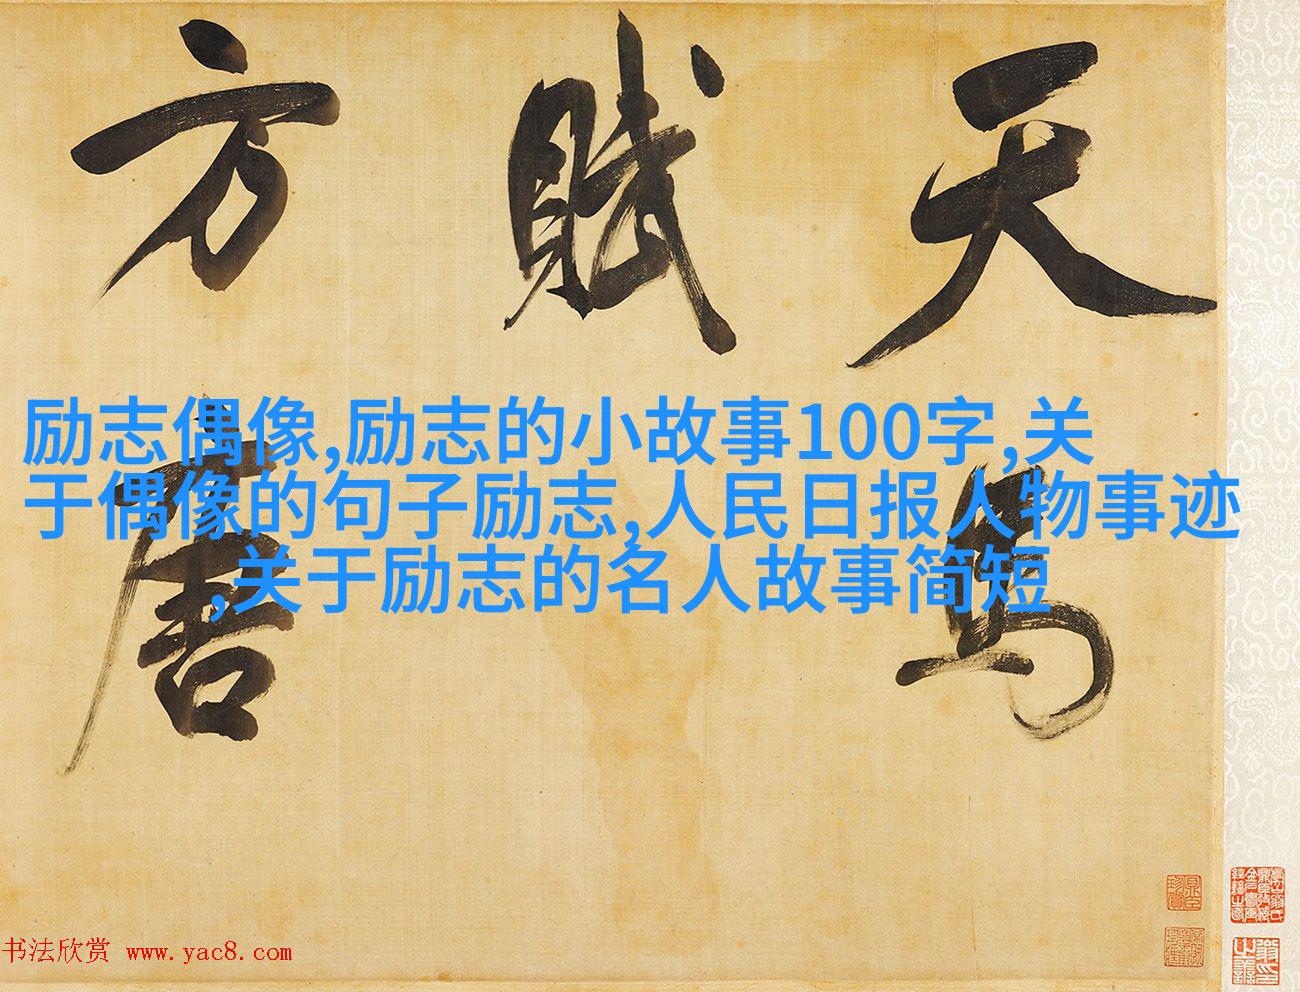 天马
赋
方
唐
励志偶像,励志的小故事100字,关
于偶像的句子励志,人民日报人物事迹
,关于励志的名人故事简短
书法欣赏 www.yac8.com